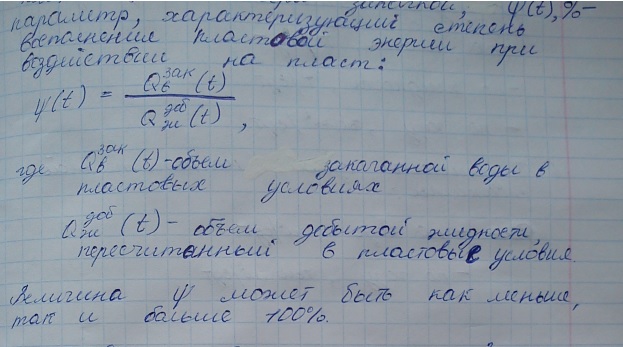 закачкой, ψ(t), % –
параметр, характеризующий степень
восполнения пластовой энергии при
воздействии на пласт:
ψ(t) = Qв^зак (t) / Qж^доб (t) ,
где Qв^зак (t) - объем закачанной воды в
пластовых условиях
Qж^доб (t) – объем добытой жидкости,
пересчитанный в пластовые условия
Величина ψ может быть как меньше,
так и больше 100%.